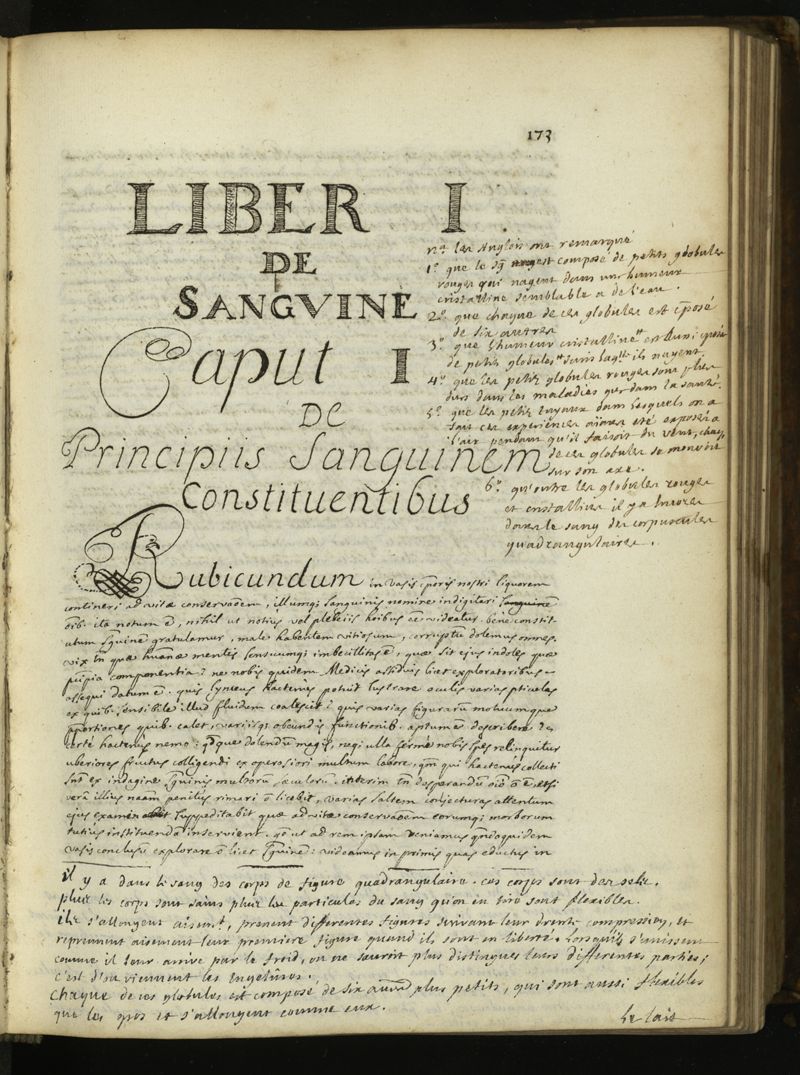 173
LIBER I.
DE
SANGVINE
Caput I
DE
Principiis Sanguinem
Constituentibus
nª les Anglois ont remarqué
1º que le sg est composé de petits globules
rouges qui nagent dans une humeur
cristalline semblable a de l'eau.
2º que chaque de ces globules est cposé
de six autres
3º que l'humeur cristalline est aussi cposée
de petits globules dans laqlle ils nagent.
4º que les petits globules rouges sont plus
durs dans les maladies que dans la santé.
5º que les petits tuyaux dans lesquels on a
fait ces experiences aiant eté exposés a
l'air pendant qu'il faisoit du vent, chaq,
de ces globules se mouvoit
sur son axe.
6º qu'outre les globules rouges
et cristallins il y a encore
dans le sang des corpuscules
quadrangulaires.
Rubicundum in vasis cporis nostri liquorem
contineri ad vitæ conservaoem, illumq; sanguinis nomine indigitari
oib. ita notum ē, nihil ut notius vel plebeiis hoibus ac videatur. bene constit-
utum sguinem gratulamur, male habentem vitiosum, corruptū dolemus omnes.
vix tn quæ humanæ mentis sensuumq; imbecillitas ē, quæ sit ejus indoles quæ
pcipia componentia: ne nobis quidem Medicis assiduis licet exploratoribus
assequi datum ē. quis lynceus hactenus potuit lustrare oculis varias pticulas
ex quib. sensibile illud fluidum coalescit: quis varias figurarū motuumque
pportiones quib. calet, variisq; obeundis functionib. aptum ē describere
certe hactenus nemo: qdque dolendū magis, neq; ulla ferme nobis spes relinquitur
uberiores fructus colligendi ex operosiori multum labore, qm qui hactenus collecti
snt ex indagine sguinis multorū sæculorū. interim tn desperandū oīo ō ē, etsi
verā illius naam penitus rimari ō licebit, varias saltem conjecturas attentum
ejus examen suppeditabit quæ ad vitæ conservaoem eorumq; morborum
tutius instituendā inservient. qd ut ad rem ipsam veniamus qndoquidem
vasis conclusū explorare ō licet sguinē: videamus in primis quas eductus in
il y a dans le sang des corps de figure quadrangulaire. ces corps sont des sels.
plus les corps sont sains plus les particules du sang qu'on en tire sont flexibles.
ils s'allongent aisemt, prenent differentes figures suivant leur drente compression, et
reprennent aisement leur premiere figure quand ils sont en liberté. Lorsqu'ils s'unissent
comme il leur arrive par le froid, on ne sauroit plus distinguer leurs differentes parties;
c'est d'ou viennent les engelûres.
Chaque de ces globules est composé de six autres plus petits, qui sont aussi flexibles
que les gros et s'allongent comme eux.
Le lait